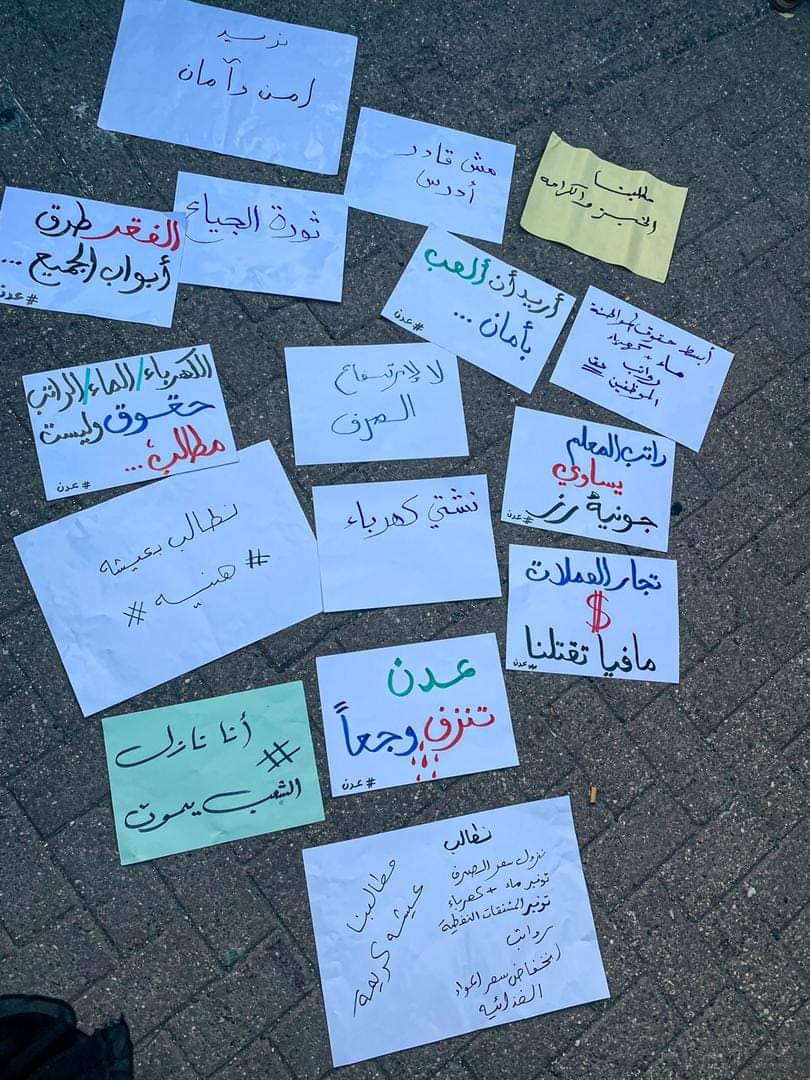 نريد
امن وأمان
مش قادر
أدرس
مطلبنا
الخبز والكرامه
ثورة الجياع
الفقر طرق
أبواب الجميع ...
#عدن
أريد أن ألعب
بأمان ...
#عدن
أبسط حقوق المواطنة
ماء - كهرباء
رواتب
الموظفين حق
الكهرباء/الماء/الراتب
حقوق وليست
مطالب ...
#عدن
لا لإرتفاع
الصرف
راتب المعلم
يساوي
جونية رز
#عدن
نطالب بعيشه
# هنيه #
نشتي كهرباء
تجار العملات
$
مافيا تقتلنا
#عدن
عدن
تنزف وجعاً
#عدن
أنا نازل
#
الشعب يموت
نطالب
نزول سعر الصرف
توفير ماء + كهرباء
توفير المشتقات النفطية
رواتب
انخفاض سعر المواد
الغذائيه
مطالبنا
عيشه كريمة